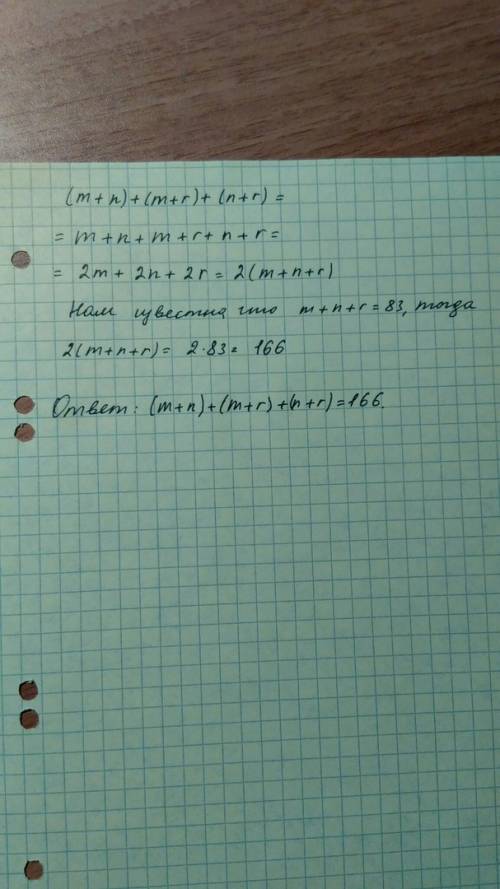 (m+n)+(m+r)+(n+r)=
= m+n+m+r+n+r=
= 2m+2n+2r = 2(m+n+r)
Нам известна что m+n+r=83, тогда
2(m+n+r)= 2·83= 166
Ответ: (m+n)+(m+r)+(n+r)=166.